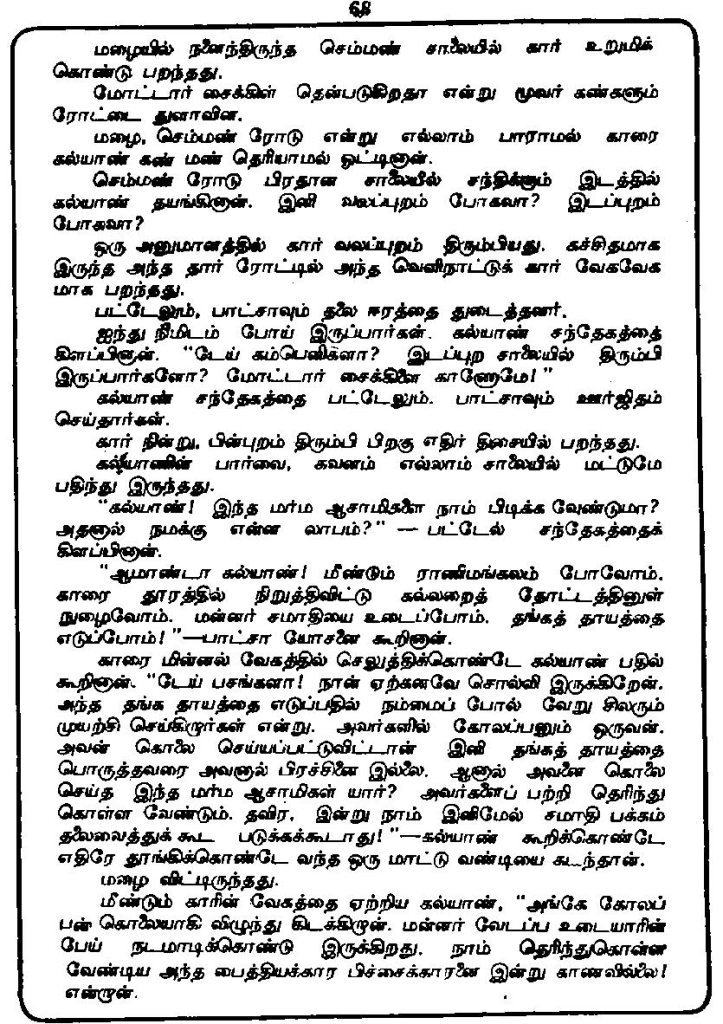 68
மழையில் நனைந்திருந்த செம்மண் சாலையில் கார் உறுமிக்
கொண்டு பறந்தது.
மோட்டார் சைக்கிள் தென்படுகிறதா என்று மூவர் கண்களும்
ரோட்டை துளாவின.
மழை, செம்மண் ரோடு என்று எல்லாம் பாராமல் காரை
கல்யாண் கண் மண் தெரியாமல் ஓட்டினான்.
செம்மண் ரோடு பிரதான சாலையில் சந்திக்கும் இடத்தில்
கல்யாண் தயங்கினான். இனி வலப்புறம் போகவா? இடப்புறம்
போகவா?
ஒரு அனுமானத்தில் கார் வலப்புறம் திரும்பியது. கச்சிதமாக
இருந்த அந்த தார் ரோட்டில் அந்த வெளிநாட்டுக் கார் வேகவேக
மாக பறந்தது.
பட்டேலும், பாட்சாவும் தலை ஈரத்தை துடைத்தனர்.
ஐந்து நிமிடம் போய் இருப்பார்கள். கல்யாண் சந்தேகத்தை
கிளப்பினான். "டேய் கம்பெனிகளா? இடப்புற சாலையில் திரும்பி
இருப்பார்களோ? மோட்டார் சைக்கிளை காணோமே!"
கல்யாண் சந்தேகத்தை பட்டேலும். பாட்சாவும் ஊர்ஜிதம்
செய்தார்கள்.
கார் நின்று, பின்புறம் திரும்பி பிறகு எதிர் திசையில் பறந்தது.
கல்யாணின் பார்வை, கவனம் எல்லாம் சாலையில் மட்டுமே
பதிந்து இருந்தது.
"கல்யாண்! இந்த மர்ம ஆசாமிகளை நாம் பிடிக்க வேண்டுமா?
அதனால் நமக்கு என்ன லாபம்?" — பட்டேல் சந்தேகத்தைக்
கிளப்பினான்.
"ஆமாண்டா கல்யாண்! மீண்டும் ராணிமங்கலம் போவோம்.
காரை தூரத்தில் நிறுத்திவிட்டு கல்லறைத் தோட்டத்தினுள்
நுழைவோம். மன்னர் சமாதியை உடைப்போம். தங்கத் தாயத்தை
எடுப்போம்!"—பாட்சா யோசனை கூறினான்.
காரை மின்னல் வேகத்தில் செலுத்திக்கொண்டே கல்யாண் பதில்
கூறினான். "டேய் பசங்களா! நான் ஏற்கனவே சொல்லி இருக்கிறேன்.
அந்த தங்க தாயத்தை எடுப்பதில் நம்மைப் போல் வேறு சிலரும்
முயற்சி செய்கிறார்கள் என்று. அவர்களில் கோலப்பனும் ஒருவன்.
அவன் கொலை செய்யப்பட்டுவிட்டான் இனி தங்கத் தாயத்தை
பொருத்தவரை அவனால் பிரச்சினை இல்லை. ஆனால் அவனை கொலை
செய்த இந்த மர்ம ஆசாமிகள் யார்? அவர்களைப் பற்றி தெரிந்து
கொள்ள வேண்டும். தவிர, இன்று நாம் இனிமேல் சமாதி பக்கம்
தலைவைத்துக் கூட படுக்கக்கூடாது!"—கல்யாண் கூறிக்கொண்டே
எதிரே தூங்கிக்கொண்டே வந்த ஒரு மாட்டு வண்டியை கடந்தான்.
மழை விட்டிருந்தது.
மீண்டும் காரின் வேகத்தை ஏற்றிய கல்யாண், "அங்கே கோலப்
பன் கொலையாகி விழுந்து கிடக்கிறான். மன்னர் வேடப்ப உடையாரின்
பேய் நடமாடிக்கொண்டு இருக்கிறது. நாம் தெரிந்துகொள்ள
வேண்டிய அந்த பைத்தியக்கார பிச்சைக்காரனை இன்று காணவில்லை!
என்றான்.